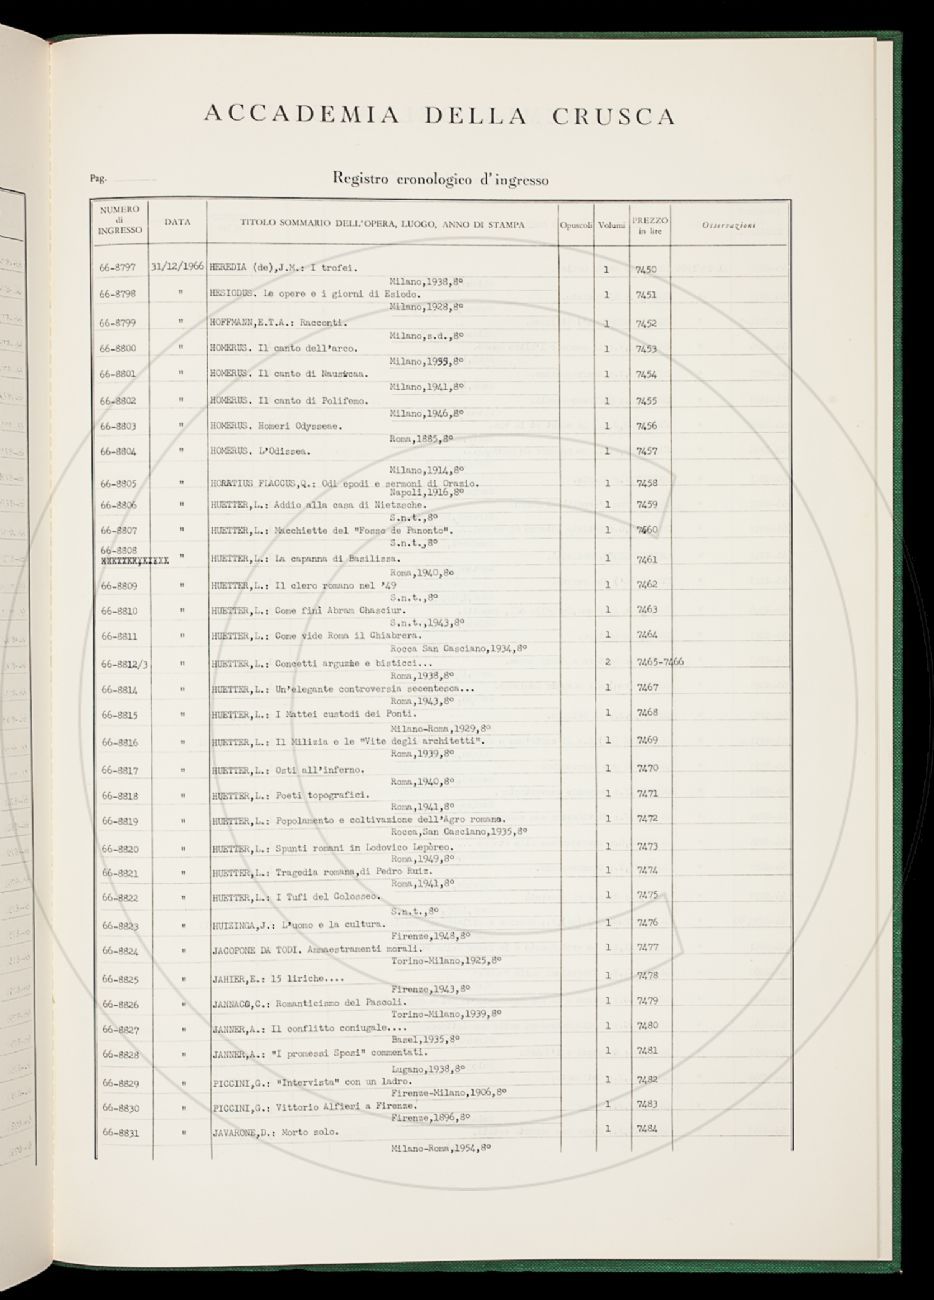 ACCADEMIA DELLA CRUSCA
Pag. Registro cronologico d'ingresso
NUMERO di INGRESSO DATA TITOLO SOMMARIO DELL'OPERA, LUOGO, ANNO DI STAMPA Opuscoli Volumi PREZZO in lire Osservazioni
66-8797 31/12/1966 HEREDIA (de),J.M.: I trofei. 1 7450
Milano,1938,8º
66-8798 " HESIODUS. Le opere e i giorni di Esiodo. 1 7451
Milano,1928,8º
66-8799 " HOFFMANN,E.T.A.: Racconti. 1 7452
Milano,s.d.,8º
66-8800 " HOMERUS. Il canto dell'arco. 1 7453
Milano,1955,8º
66-8801 " HOMERUS. Il canto di Nausicaa. 1 7454
Milano,1941,8º
66-8802 " HOMERUS. Il canto di Polifemo. 1 7455
Milano,1946,8º
66-8803 " HOMERUS. Homeri Odysseae. 1 7456
Roma,1885,8º
66-8804 " HOMERUS. L'Odissea. 1 7457
Milano,1914,8º
66-8805 " HORATIUS FLACCUS,Q.: Odi epodi e sermoni di Orazio. 1 7458
Napoli,1916,8º
66-8806 " HUETTER,L.: Addio alla casa di Nietzsche. 1 7459
S.n.t.,8º
66-8807 " HUETTER,L.: Macchiette del "Fosso de Panonto". 1 7460
S.n.t.,8º
66-8808 " HUETTER,L.: La capanna di Basilissa. 1 7461
Roma,1940,8º
66-8809 " HUETTER,L.: Il clero romano nel '49 1 7462
S.n.t.,8º
66-8810 " HUETTER,L.: Come finì Abram Chasciur. 1 7463
S.n.t.,1943,8º
66-8811 " HUETTER,L.: Come vide Roma il Chiabrera. 1 7464
Rocca San Casciano,1934,8º
66-8812/3 " HUETTER,L.: Concetti arguzie e bisticci... 2 7465-7466
Roma,1938,8º
66-8814 " HUETTER,L.: Un'elegante controversia secentesca... 1 7467
Roma,1943,8º
66-8815 " HUETTER,L.: I Mattei custodi dei Ponti. 1 7468
Milano-Roma,1929,8º
66-8816 " HUETTER,L.: Il Milizia e le "Vite degli architetti". 1 7469
Roma,1939,8º
66-8817 " HUETTER,L.: Osti all'inferno. 1 7470
Roma,1940,8º
66-8818 " HUETTER,L.: Poeti topografici. 1 7471
Roma,1941,8º
66-8819 " HUETTER,L.: Popolamento e coltivazione dell'Agro romano. 1 7472
Rocca,San Casciano,1935,8º
66-8820 " HUETTER,L.: Spunti romani in Lodovico Lepòreo. 1 7473
Roma,1949,8º
66-8821 " HUETTER,L.: Tragedia romana,di Pedro Ruiz. 1 7474
Roma,1941,8º
66-8822 " HUETTER,L.: I Tufi del Colosseo. 1 7475
S.n.t.,8º
66-8823 " HUIZINGA,J.: L'uomo e la cultura. 1 7476
Firenze,1948,8º
66-8824 " JACOPONE DA TODI. Ammaestramenti morali. 1 7477
Torino-Milano,1925,8º
66-8825 " JAHIER,E.: 15 liriche.... 1 7478
Firenze,1943,8º
66-8826 " JANNACO,C.: Romanticismo del Pascoli. 1 7479
Torino-Milano,1939,8º
66-8827 " JANNER,A.: Il conflitto coniugale.... 1 7480
Basel,1935,8º
66-8828 " JANNER,A.: "I promessi Sposi" commentati. 1 7481
Lugano,1938,8º
66-8829 " PICCINI,G.: "Intervista" con un ladro. 1 7482
Firenze-Milano,1906,8º
66-8830 " PICCINI,G.: Vittorio Alfieri a Firenze. 1 7483
Firenze,1896,8º
66-8831 " JAVARONE,D.: Morto solo. 1 7484
Milano-Roma,1954,8º